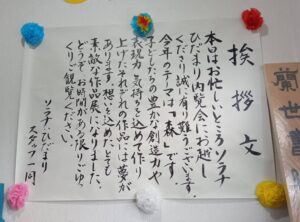 挨拶文
本日はお忙しいところソラナ
ひだまり内覧会にお越し
くださり誠に有り難うございます。
今年のテーマは「森」です
子どもたちの豊かな創造力や
表現力、気持ちを込めて作り
上げたそれぞれの作品には夢が
あります。想いを込めたとても
素敵な作品展になりました。
どうぞお時間がある限りごゆっ
くりご観覧ください。
ソラナひだまり
スタッフ一同